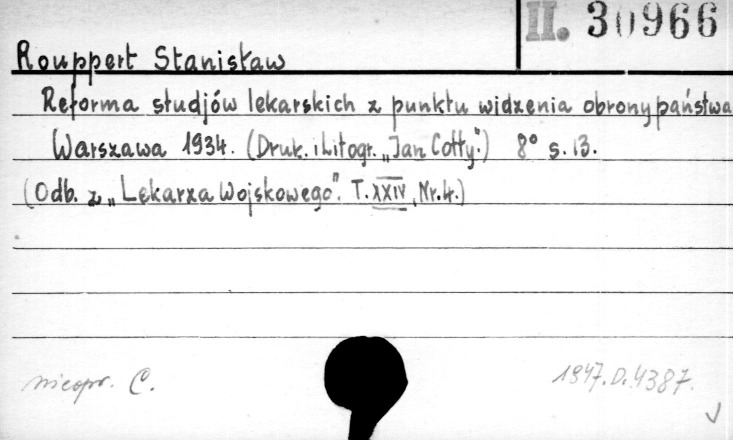 II. 30966
Rouppert Stanisław
Reforma studjów lekarskich z punktu widzenia obrony państwa
Warszawa 1934. (Druk. i Litogr. „Jan Cotty".) 8° s. 13.
(Odb. z „Lekarza Wojskowego". T. XXIV, Nr. 4.)
nieopr. C.
1947.D.4387.